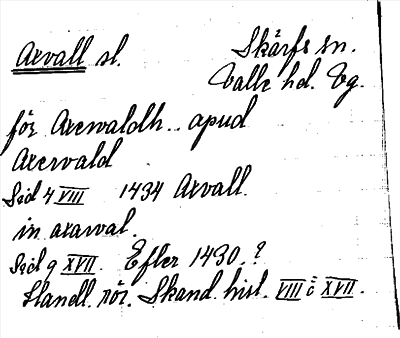 Axvall sl. Skärfs sn.
Valle hd. Vg.
för Axewaldh.. apud
Axewald
Sid 4 VIII 1434 Axvall.
in axawal.
Sid 9 XVII. Efter 1430.?
Handl. rör. Skand. hist. VIII o XVII.